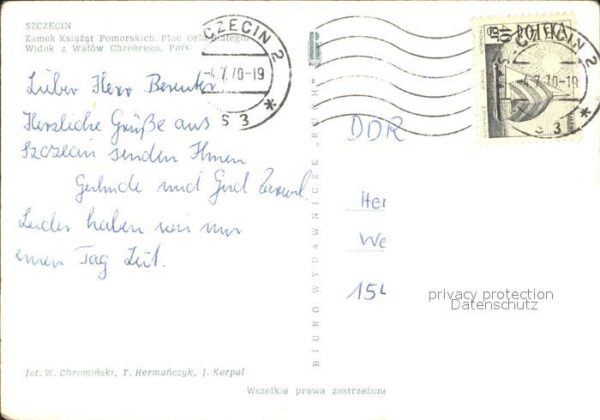 SZCZECIN
Zamek Książąt Pomorskich. Plac Orła Białego.
Widok z Wałów Chrobrego. Port.
CZECIN 2
-4.7.70-19
S 3
CZECIN 2
-4.7.70-19
S 3
Lieber Herr
Herzliche Grüße aus
Szczecin senden Ihnen
und Gerd
Leider haben wir nur
einen Tag Zeit.
BIURO WYDAWNICZE „RUCH”
DDR
He
We
154
privacy protection
Datenschutz
fot. W. Chromiński, T. Hermańczyk, J. Korpal
Wszelkie prawa zastrzeżone